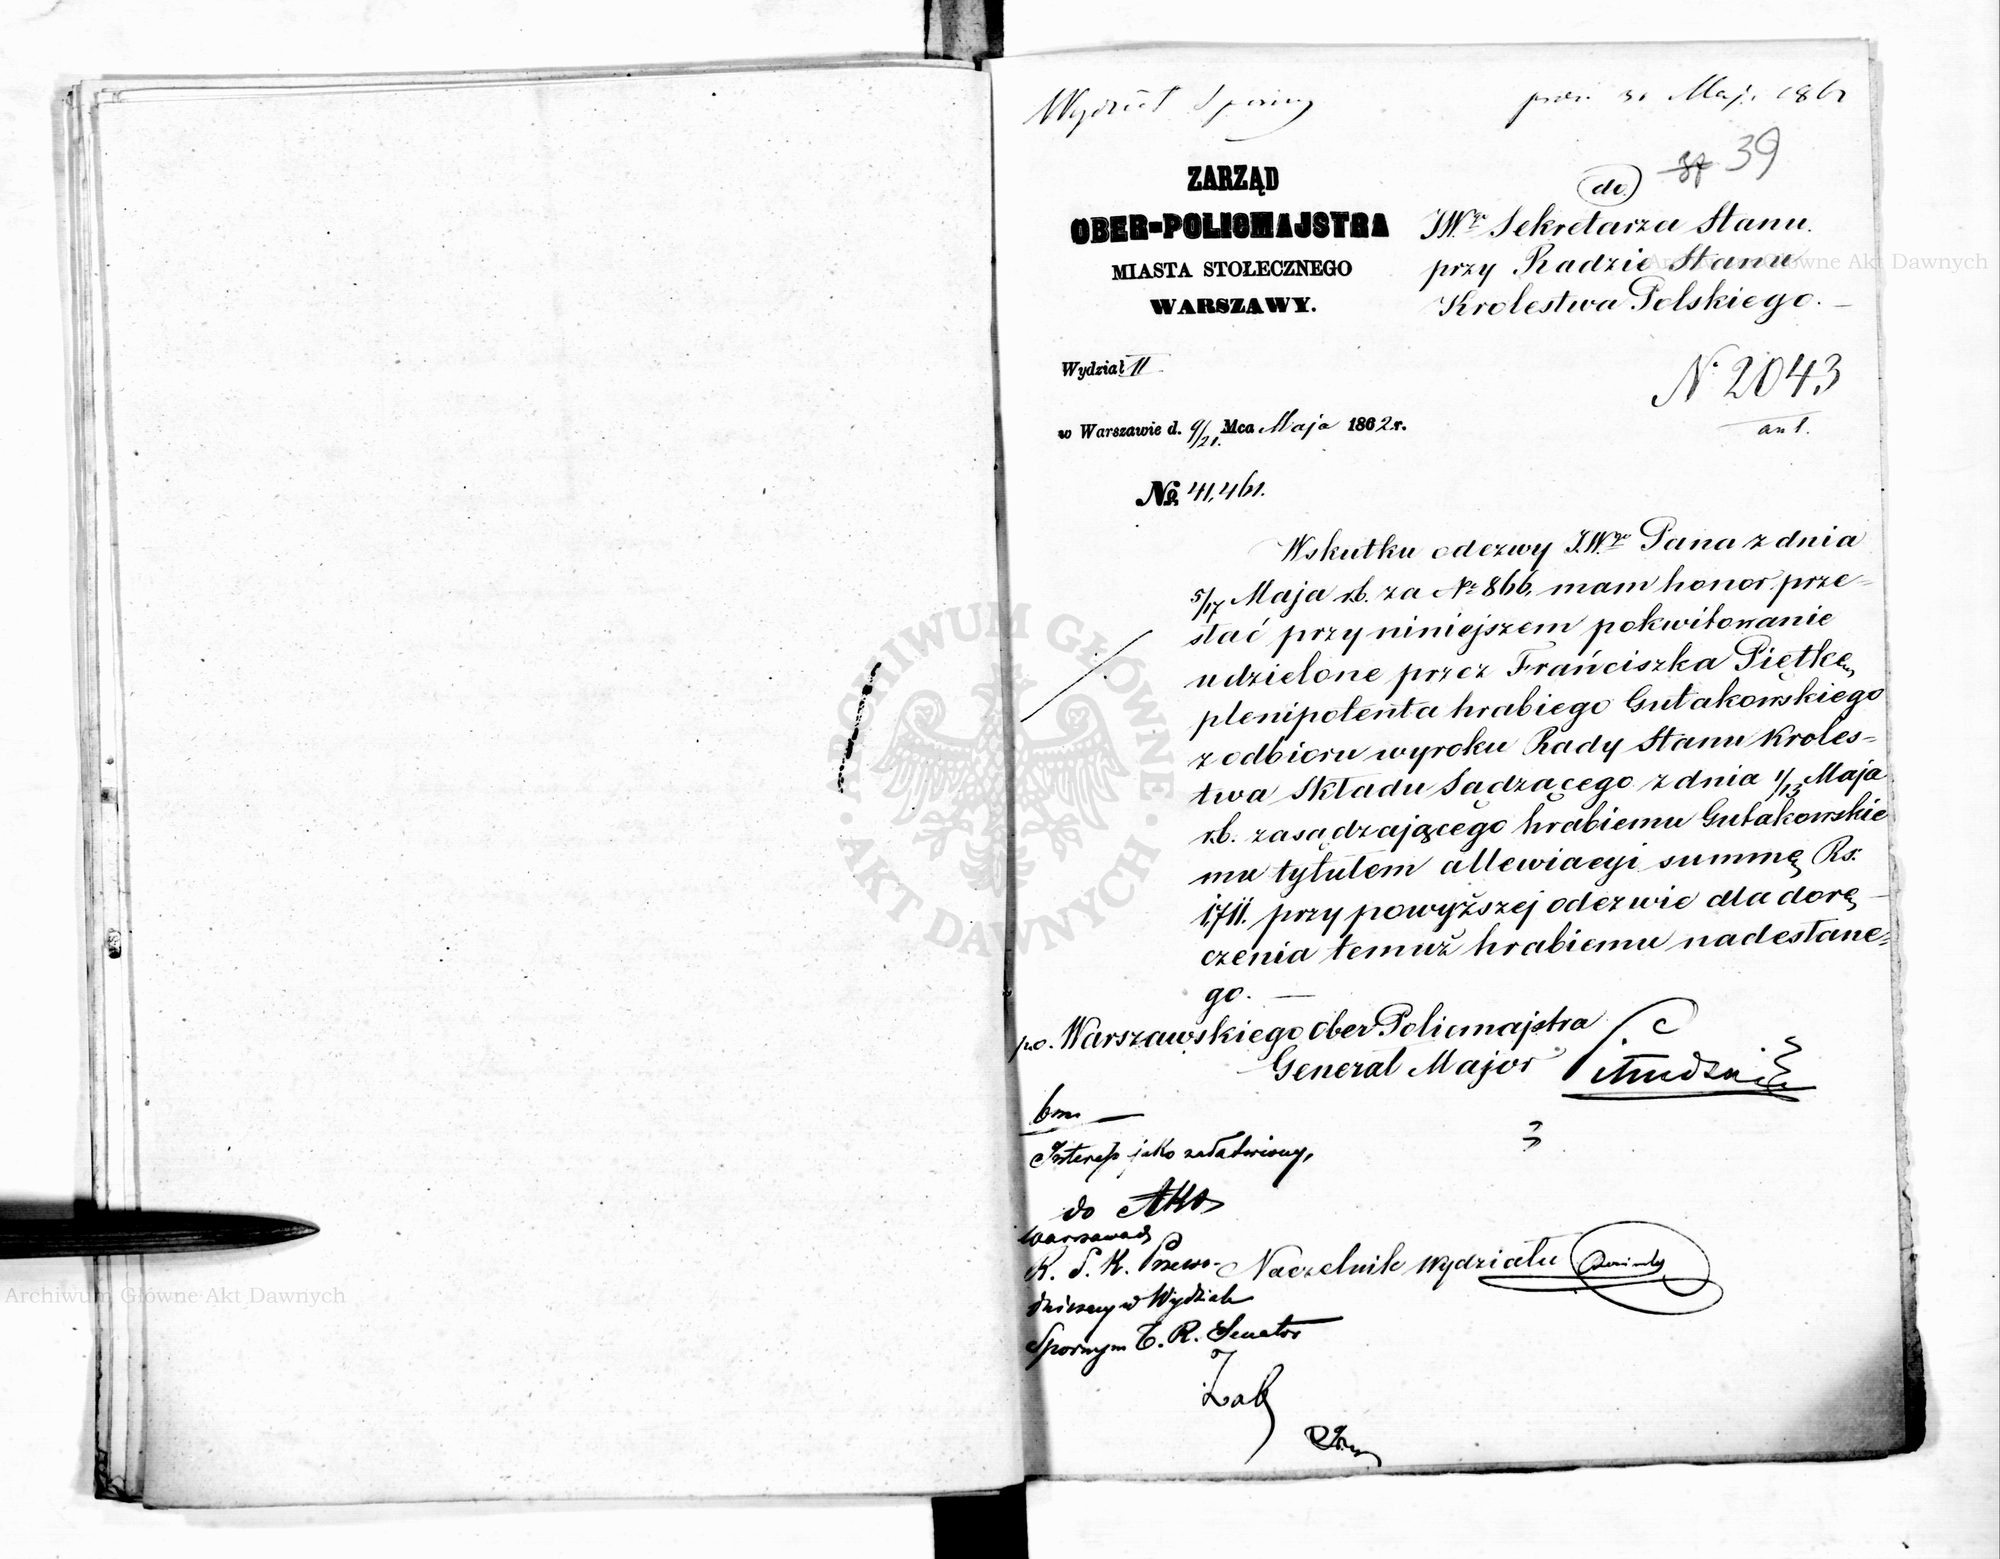 Wydział Sporny
39
ZARZĄD
OBER-POLICMAJSTRA
MIASTA STOŁECZNEGO
WARSZAWY.
Wydział II
w Warszawie d. 9/21. Mca Maja 1862 r.
No 41,461.
do
JWgo Sekretarza Stanu
przy Radzie Stanu
Krolestwa Polskiego. —
N. 2043
Wskutku odezwy J.Wgo Pana z dnia
5/17 Maja r.b. za Nr 866, mam honor prze-
słać przy niniejszem pokwitowanie
udzielone przez Franciszka Piętkę,
plenipotenta hrabiego Gutakowskiego
z odbioru wyroku Rady Stanu Kroles-
twa Składu Sądzącego z dnia 1/13 Maja
r.b. zasądzającego hrabiemu Gutakowskie
mu tytułem allewiacyi summę Rs:
1,711. przy powyższej odezwie dla dorę-
czenia temuż hrabiemu nadesłane-
go. —
p.o. Warszawskiego Ober Policmajstra
Generał Major
Interess jako załatwiony,
do Akt
Warszawa
R. S. K. Przewo-
dniczący w Wydziale
Spornym T. R. Senator
Naczelnik Wydziału
ARCHIWUM GŁÓWNE
AKT DAWNYCH
Archiwum Główne Akt Dawnych
Archiwum Główne Akt Dawnych